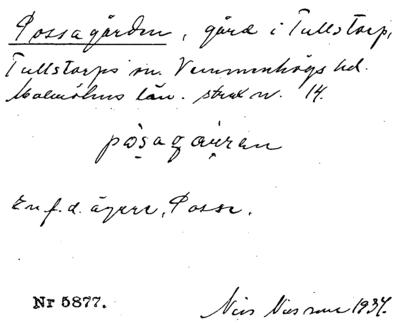 Possagården, gård i Tullstorp,
Tullstorps sn. Vemmenhögs hd.
Malmöhus län. strax n. 14.
påsagåɹɹan
En f. d. ägare, Posse.
Nr 5877. Nils Nilsson 1937.